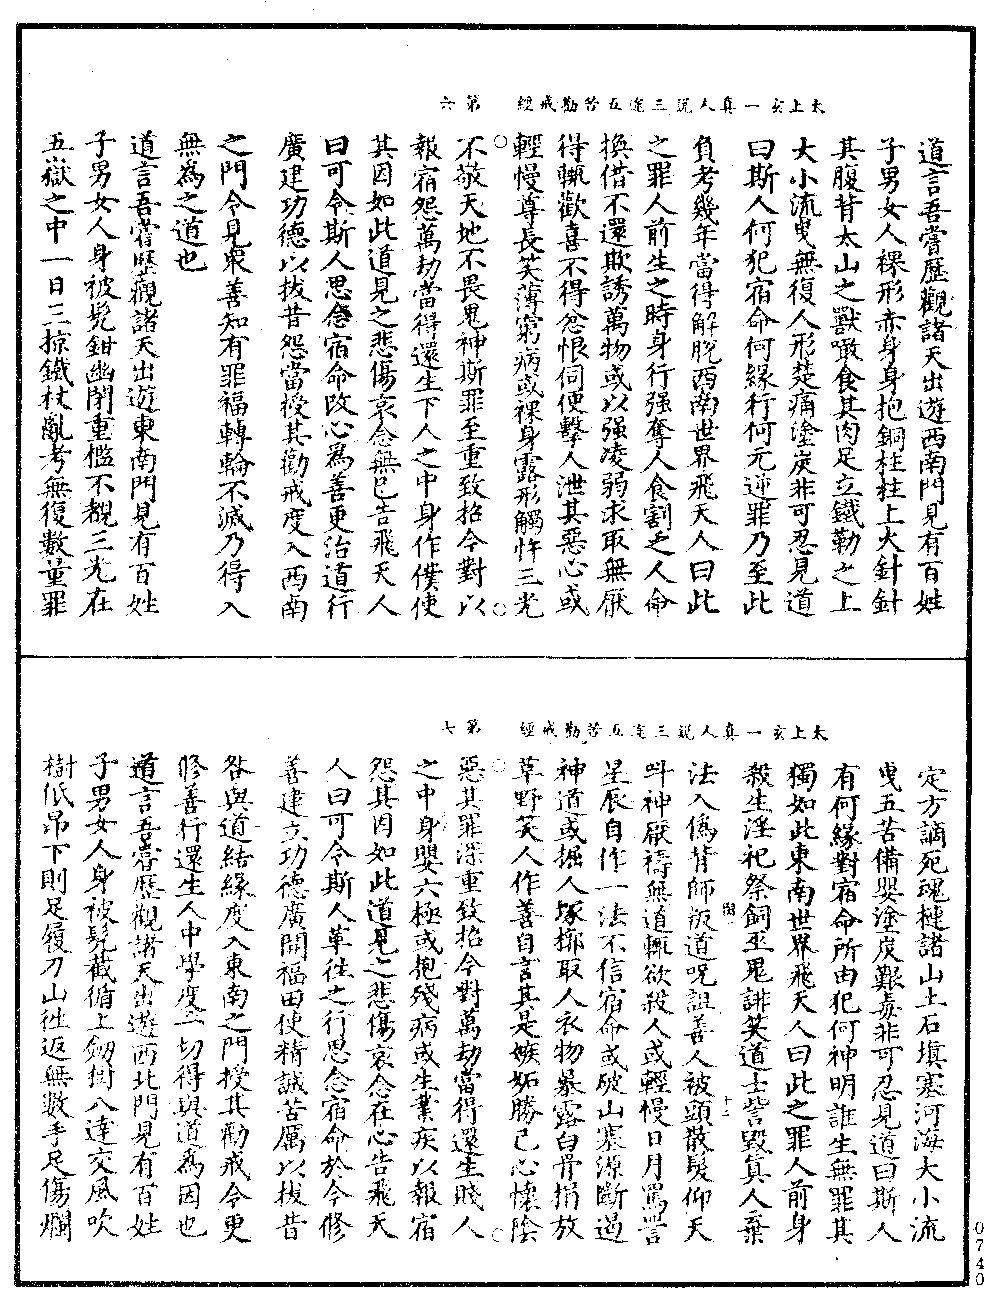 太上玄一真人說三途五苦勸戒經 第六
道言吾嘗歷觀諸天出遊西南門見有百姓
子男女人裸形赤身身抱銅柱柱上大針針
其腹背太山之獸噉食其肉足立鐵勒之上
大小流曳無復人形楚痛塗炭非可忍見道
曰斯人何犯宿命何緣行何元逆罪乃至此
負考幾年當得解脫西南世界飛天人曰此
之罪人前生之時身行强奪人食割乏人命
換借不還欺誘萬物或以强凌弱求取無厭
得輒歡喜不得忿恨伺便擊人泄其惡心或
輕慢尊長笑薄窮病或裸身露形觸忤三光
不敬天地不畏鬼神斯罪至重致招今對以
報宿怨萬劫當得還生下人之中身作僕使
其因如此道見之悲傷哀念無已告飛天人
曰可令斯人思念宿命改心為善更治道行
廣建功德以拔昔怨當授其勸戒度入西南
之門令見東善知有罪福轉輪不滅乃得入
無為之道也
道言吾嘗歷觀諸天出遊東南門見有百姓
子男女人身被髠鉗幽閉重檻不覩三光在
五嶽之中一日三掠鐵杖亂考無復數量罪
太上玄一真人說三途五苦勸戒經 第七
定方謫死魂槤諸山上石填塞河海大小流
曳五苦備嬰塗炭艱毒非可忍見道曰斯人
有何緣對宿命所由犯何神明誰生無罪其
獨如此東南世界飛天人曰此之罪人前身
殺生淫祀祭飼巫鬼誹笑道士訾毀真人棄
法入偽背師叛道呪詛善人被頭散髮仰天
叫神厭禱無道輒欲殺人或輕慢日月罵詈
星辰自作一法不信宿命或破山塞源斷過
神道或掘人塚槨取人衣物暴露白骨捐放
草野笑人作善自言其是嫉妬勝己心懷陰
惡其罪深重致招今對萬劫當得還生賤人
之中身嬰六極或抱殘病或生業疾以報宿
怨其因如此道見之悲傷哀念在心告飛天
人曰可令斯人革往之行思念宿命於今修
善建立功德廣開福田使精誠苦厲以拔昔
咎與道結緣度入東南之門授其勸戒令更
修善行還生人中學度一切得與道為因也
道言吾嘗歷觀諸天出遊西北門見有百姓
子男女人身被髠截循上劒樹八達交風吹
樹低昂下則足履刀山往返無數手足傷爛
0740